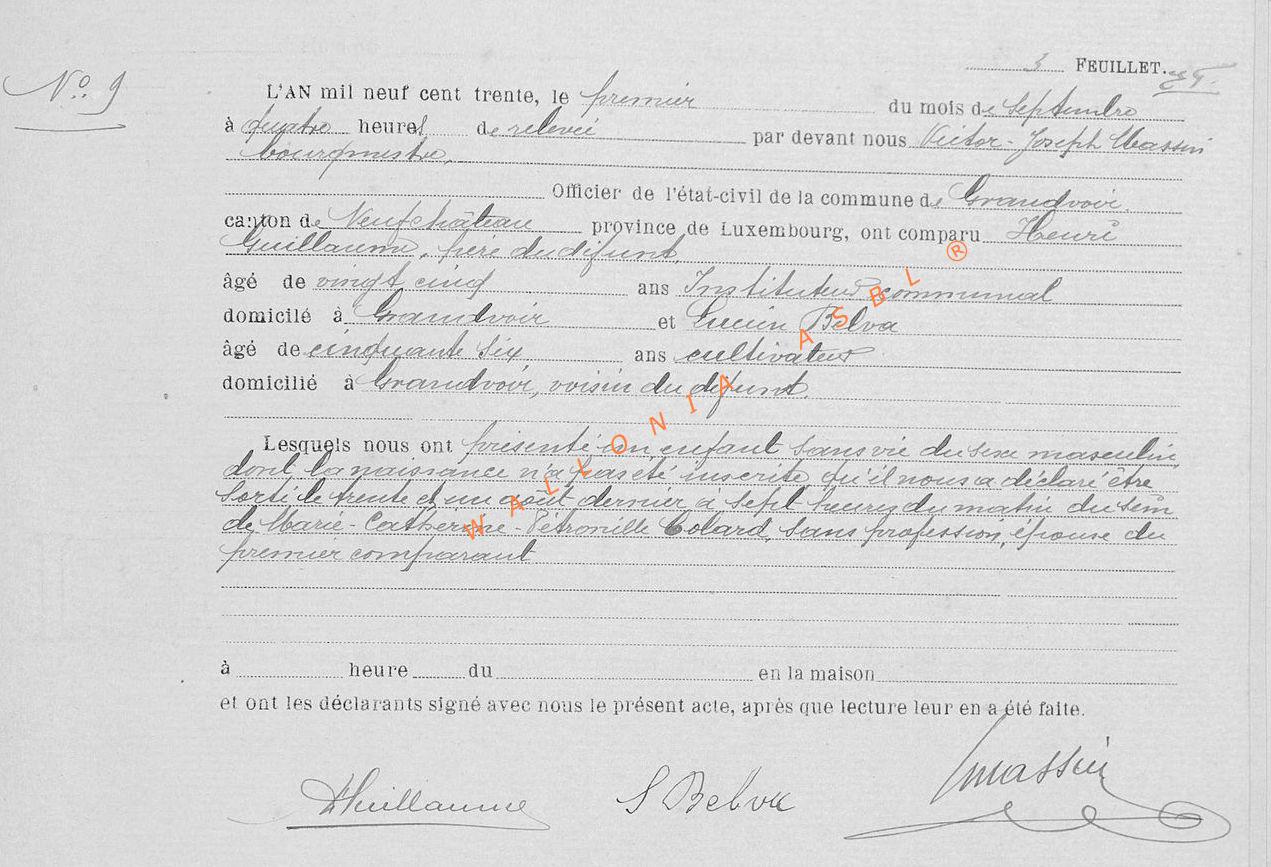 3 FEUILLET.
No. 9
L'AN mil neuf cent trente, le premier du mois de septembre
à quatre heures de relevée par devant nous Victor-Joseph Massin
bourgmestre,
Officier de l'état-civil de la commune de Grandvoir,
canton de Neufchâteau province de Luxembourg, ont comparu Henri
Guillaume, père du défunt,
âgé de vingt cinq ans Instituteur communal
domicilé à Grandvoir et Lucien Belva
âgé de cinquante six ans cultivateur
domicilié à Grandvoir, voisin du défunt.
Lesquels nous ont présenté un enfant sans vie du sexe masculin,
dont la naissance n'a pas été inscrite, qu'il nous a déclaré être
sorti le trente et un août dernier à sept heures du matin du sein
de Marie-Catherine-Pétronille Colard, sans profession, épouse du
premier comparant
WALLONIA ASBL ®
à heure du en la maison
et ont les déclarants signé avec nous le présent acte, après que lecture leur en a été faite.
HGuillaume S Belva Vmassin